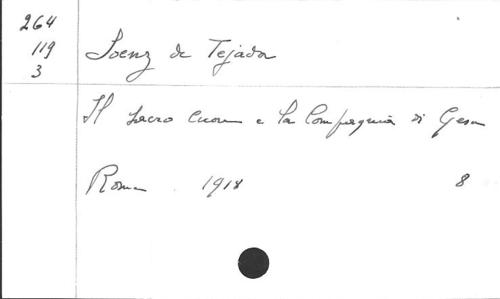 264
119
3
Soenz de Tejada
Il sacro Cuore e la Compagnia di Gesu
Roma 1918 8